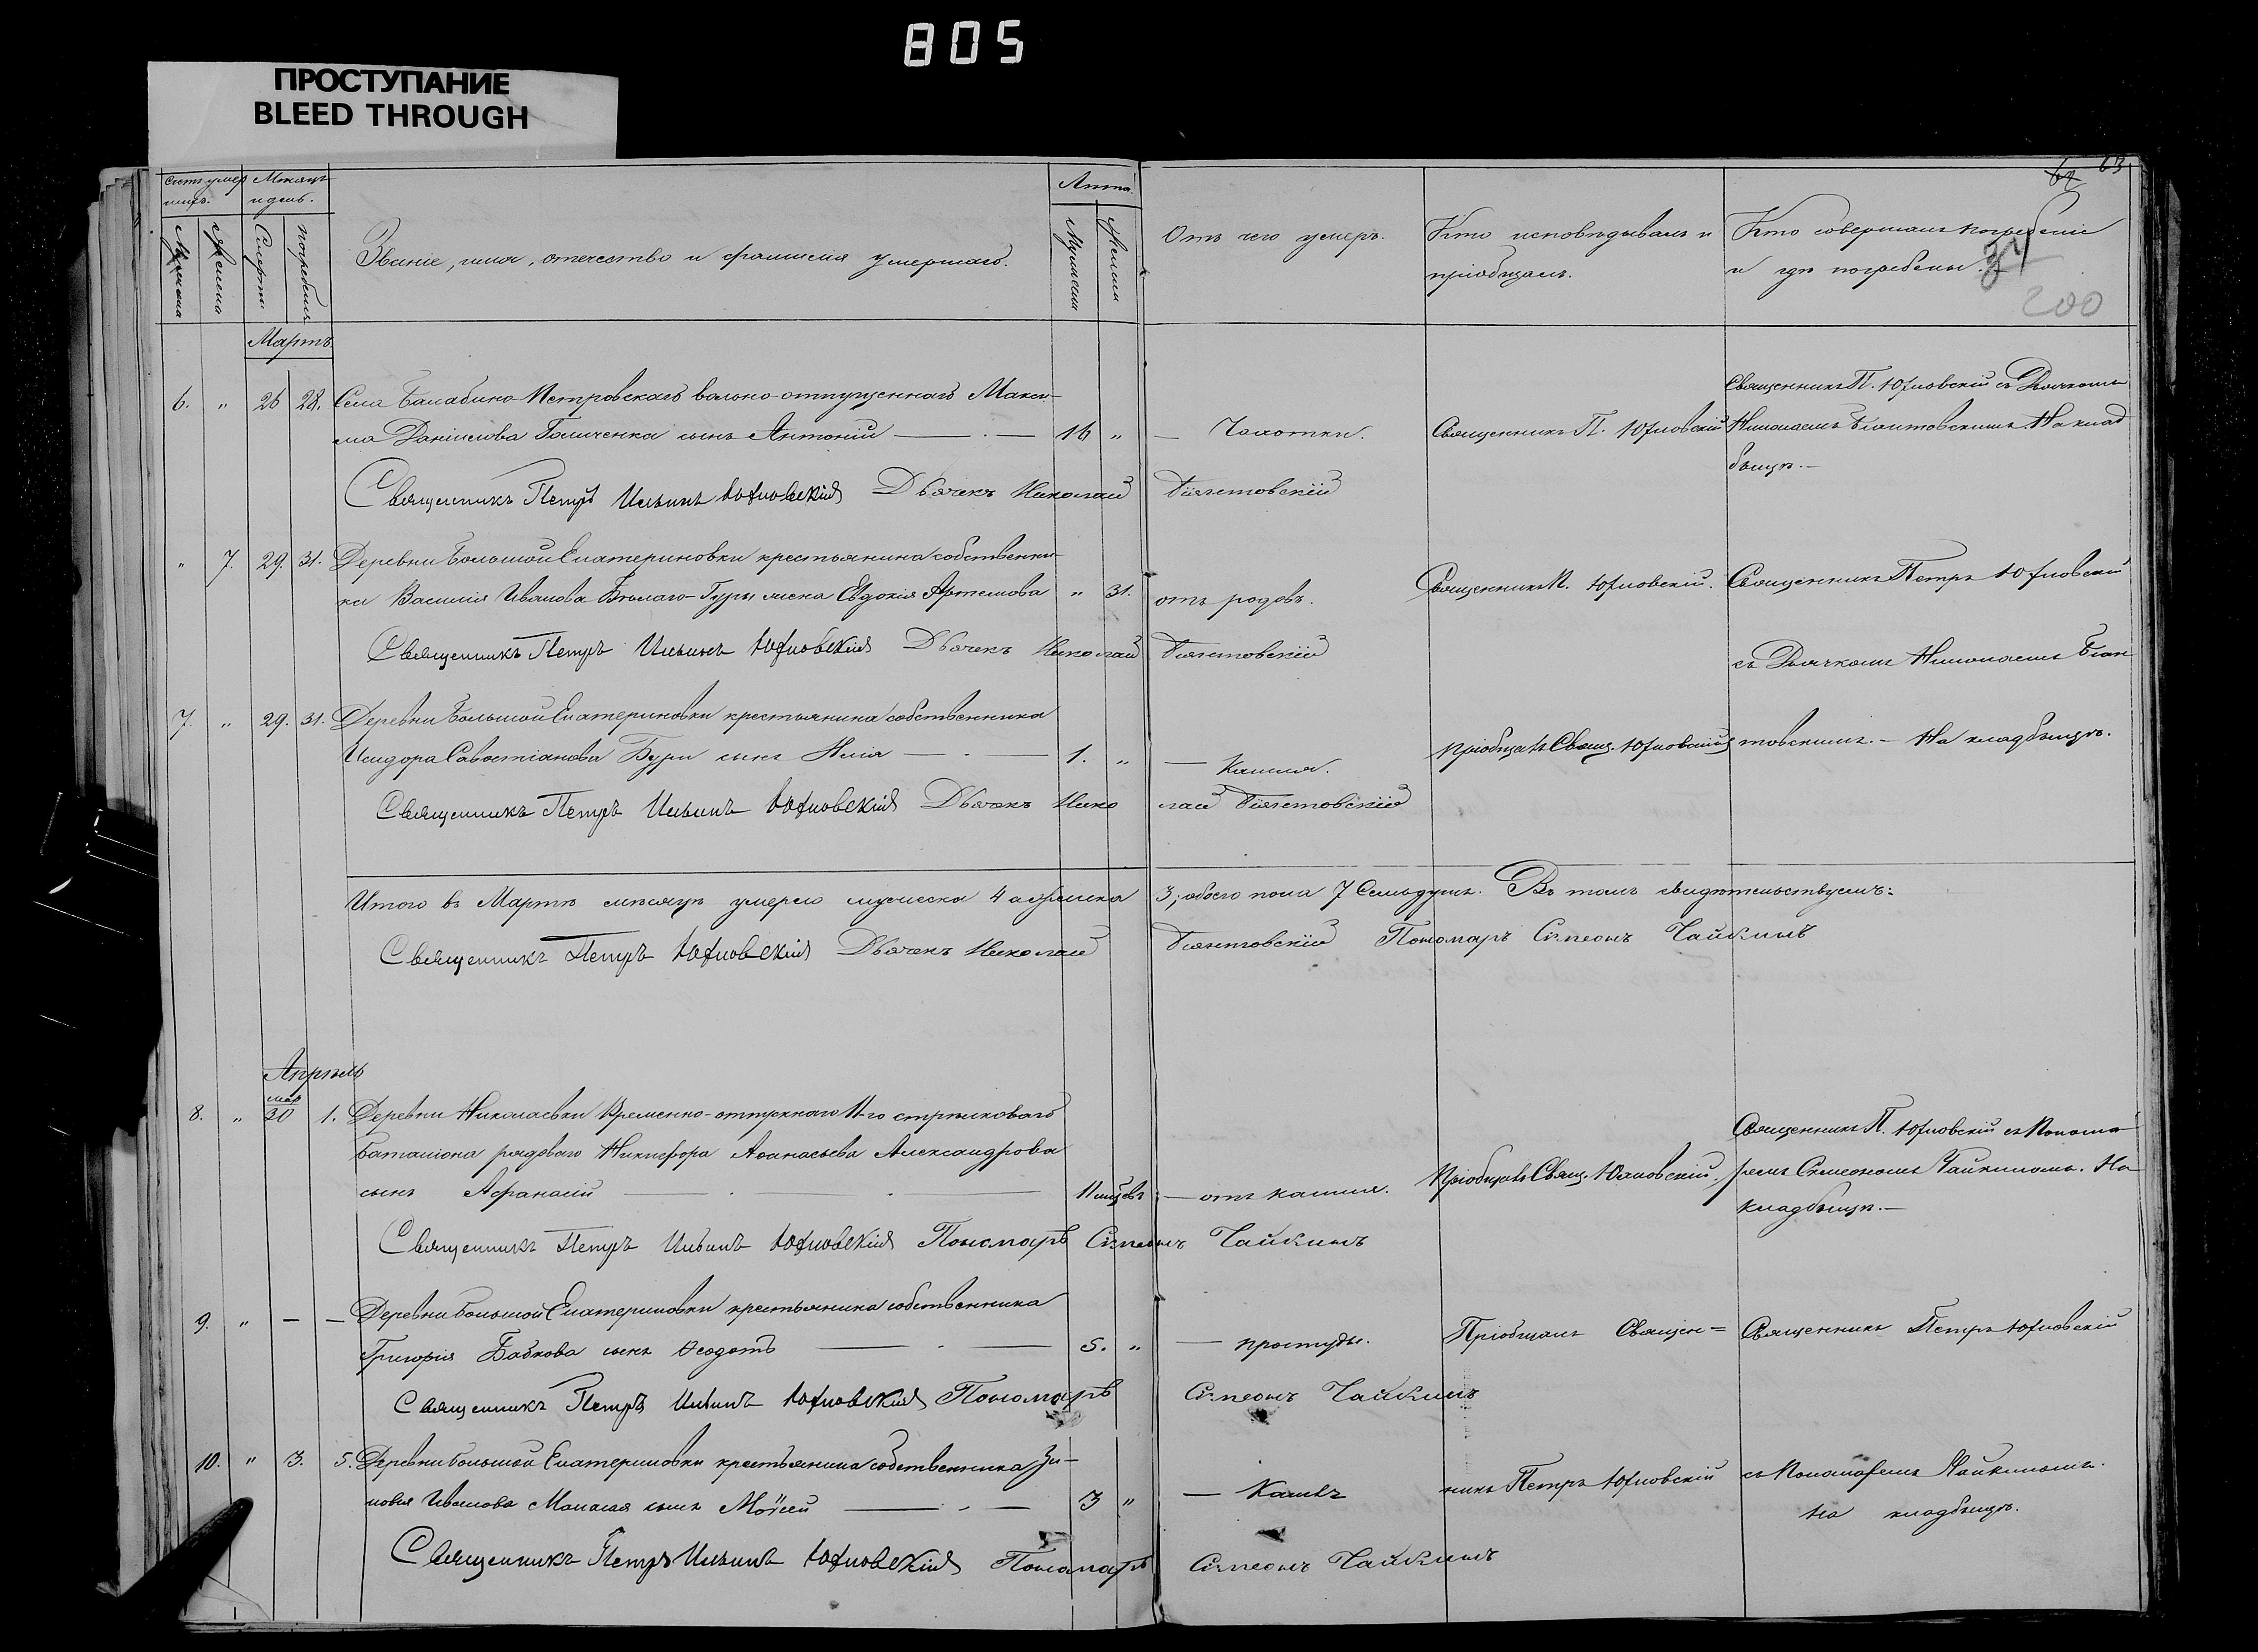 805
ПРОСТУПАНИЕ
BLEED THROUGH
63
Счетъ умер
шихъ.
Мѣсяцъ
и день.
Мужеска
Женска
Смерти
погребенія
Званіе, имя, отечество и фамилія умершаго.
Лѣта.
Мужеска
Женска
Отъ чего умеръ.
Кто исповѣдывалъ и
пріобщалъ.
Кто совершалъ погребеніе
и гдѣ погребены.
200
Мартъ
6. " 26 28. Села Балабино-Петровскаго вольно-отпущеннаго Макси-
ма Даніилова сынъ Антоній — 16 " — Чахотки. Священникъ П. Юхновскій
Священникъ П. Юхновскій съ Дьячкомъ
Николаемъ На клад
бищѣ.—
Священникъ Петръ Ильинъ Юхновскій Дьячекъ Николай
" 7. 29. 31. Деревни Большой Екатериновки крестьянина собственни-
ка Василія Иванова Бѣлаго-Гуры жена Евдокія Артемова " 31. отъ родовъ. Священникъ П. Юхновскій. Священникъ Петръ Юхновскій
Священникъ Петръ Ильинъ Юхновскій Дьячекъ Николай
съ Дьячкомъ Николаемъ
7. " 29. 31. Деревни Большой Екатериновки крестьянина собственника
Исидора Савостіанова Бури сынъ Илія — 1. " — Кашля. Пріобщалъ Свящ. Юхновскій товскимъ.— На кладбищѣ.
Священникъ Петръ Ильинъ Юхновскій Дьячекъ Нико лай
Итого въ Мартѣ мѣсяцѣ умерло мужеска 4 а женска 3, обоего пола 7 Семь душъ. Въ томъ свидѣтельствуемъ:
Священникъ Петръ Юхновскій Дьячекъ Николай Пономарь Сѵмеонъ Чайкинъ
Апрѣль
8. " мар 30 1. Деревни Николаевки Временно-отпускнаго 11-го стрѣлковаго
баталіона рядоваго Никифора Аѳанасьева Александрова
сынъ Афанасій — 11 мѣсцевъ — отъ кашля. Пріобщалъ Свящ. Юхновскій.
Священникъ П. Юхновскій съ Понома
ремъ Сѵмеономъ Чайкиномъ. На
кладбищѣ.—
Священникъ Петръ Ильинъ Юхновскій Пономарь Сѵмеонъ Чайкинъ
9. " — — Деревни Большой Екатериновки крестьянина собственника
Григорія Бабкова сынъ Ѳеодотъ — 5. " — простуды. Пріобщалъ Священ= Священникъ Петръ Юхновскій
Священникъ Петръ Ильинъ Юхновскій Пономарь Сѵмеонъ Чайкинъ
10. " 3. 5. Деревни Большой Екатериновки крестьянина собственника Зи-
новія Иванова сынъ Моѵсей — 3 " — Кашля никъ Петръ Юхновскій съ Пономаремъ Чайкиномъ.
На кладбищѣ.
Священникъ Петръ Ильинъ Юхновскій Пономарь Сѵмеонъ Чайкинъ